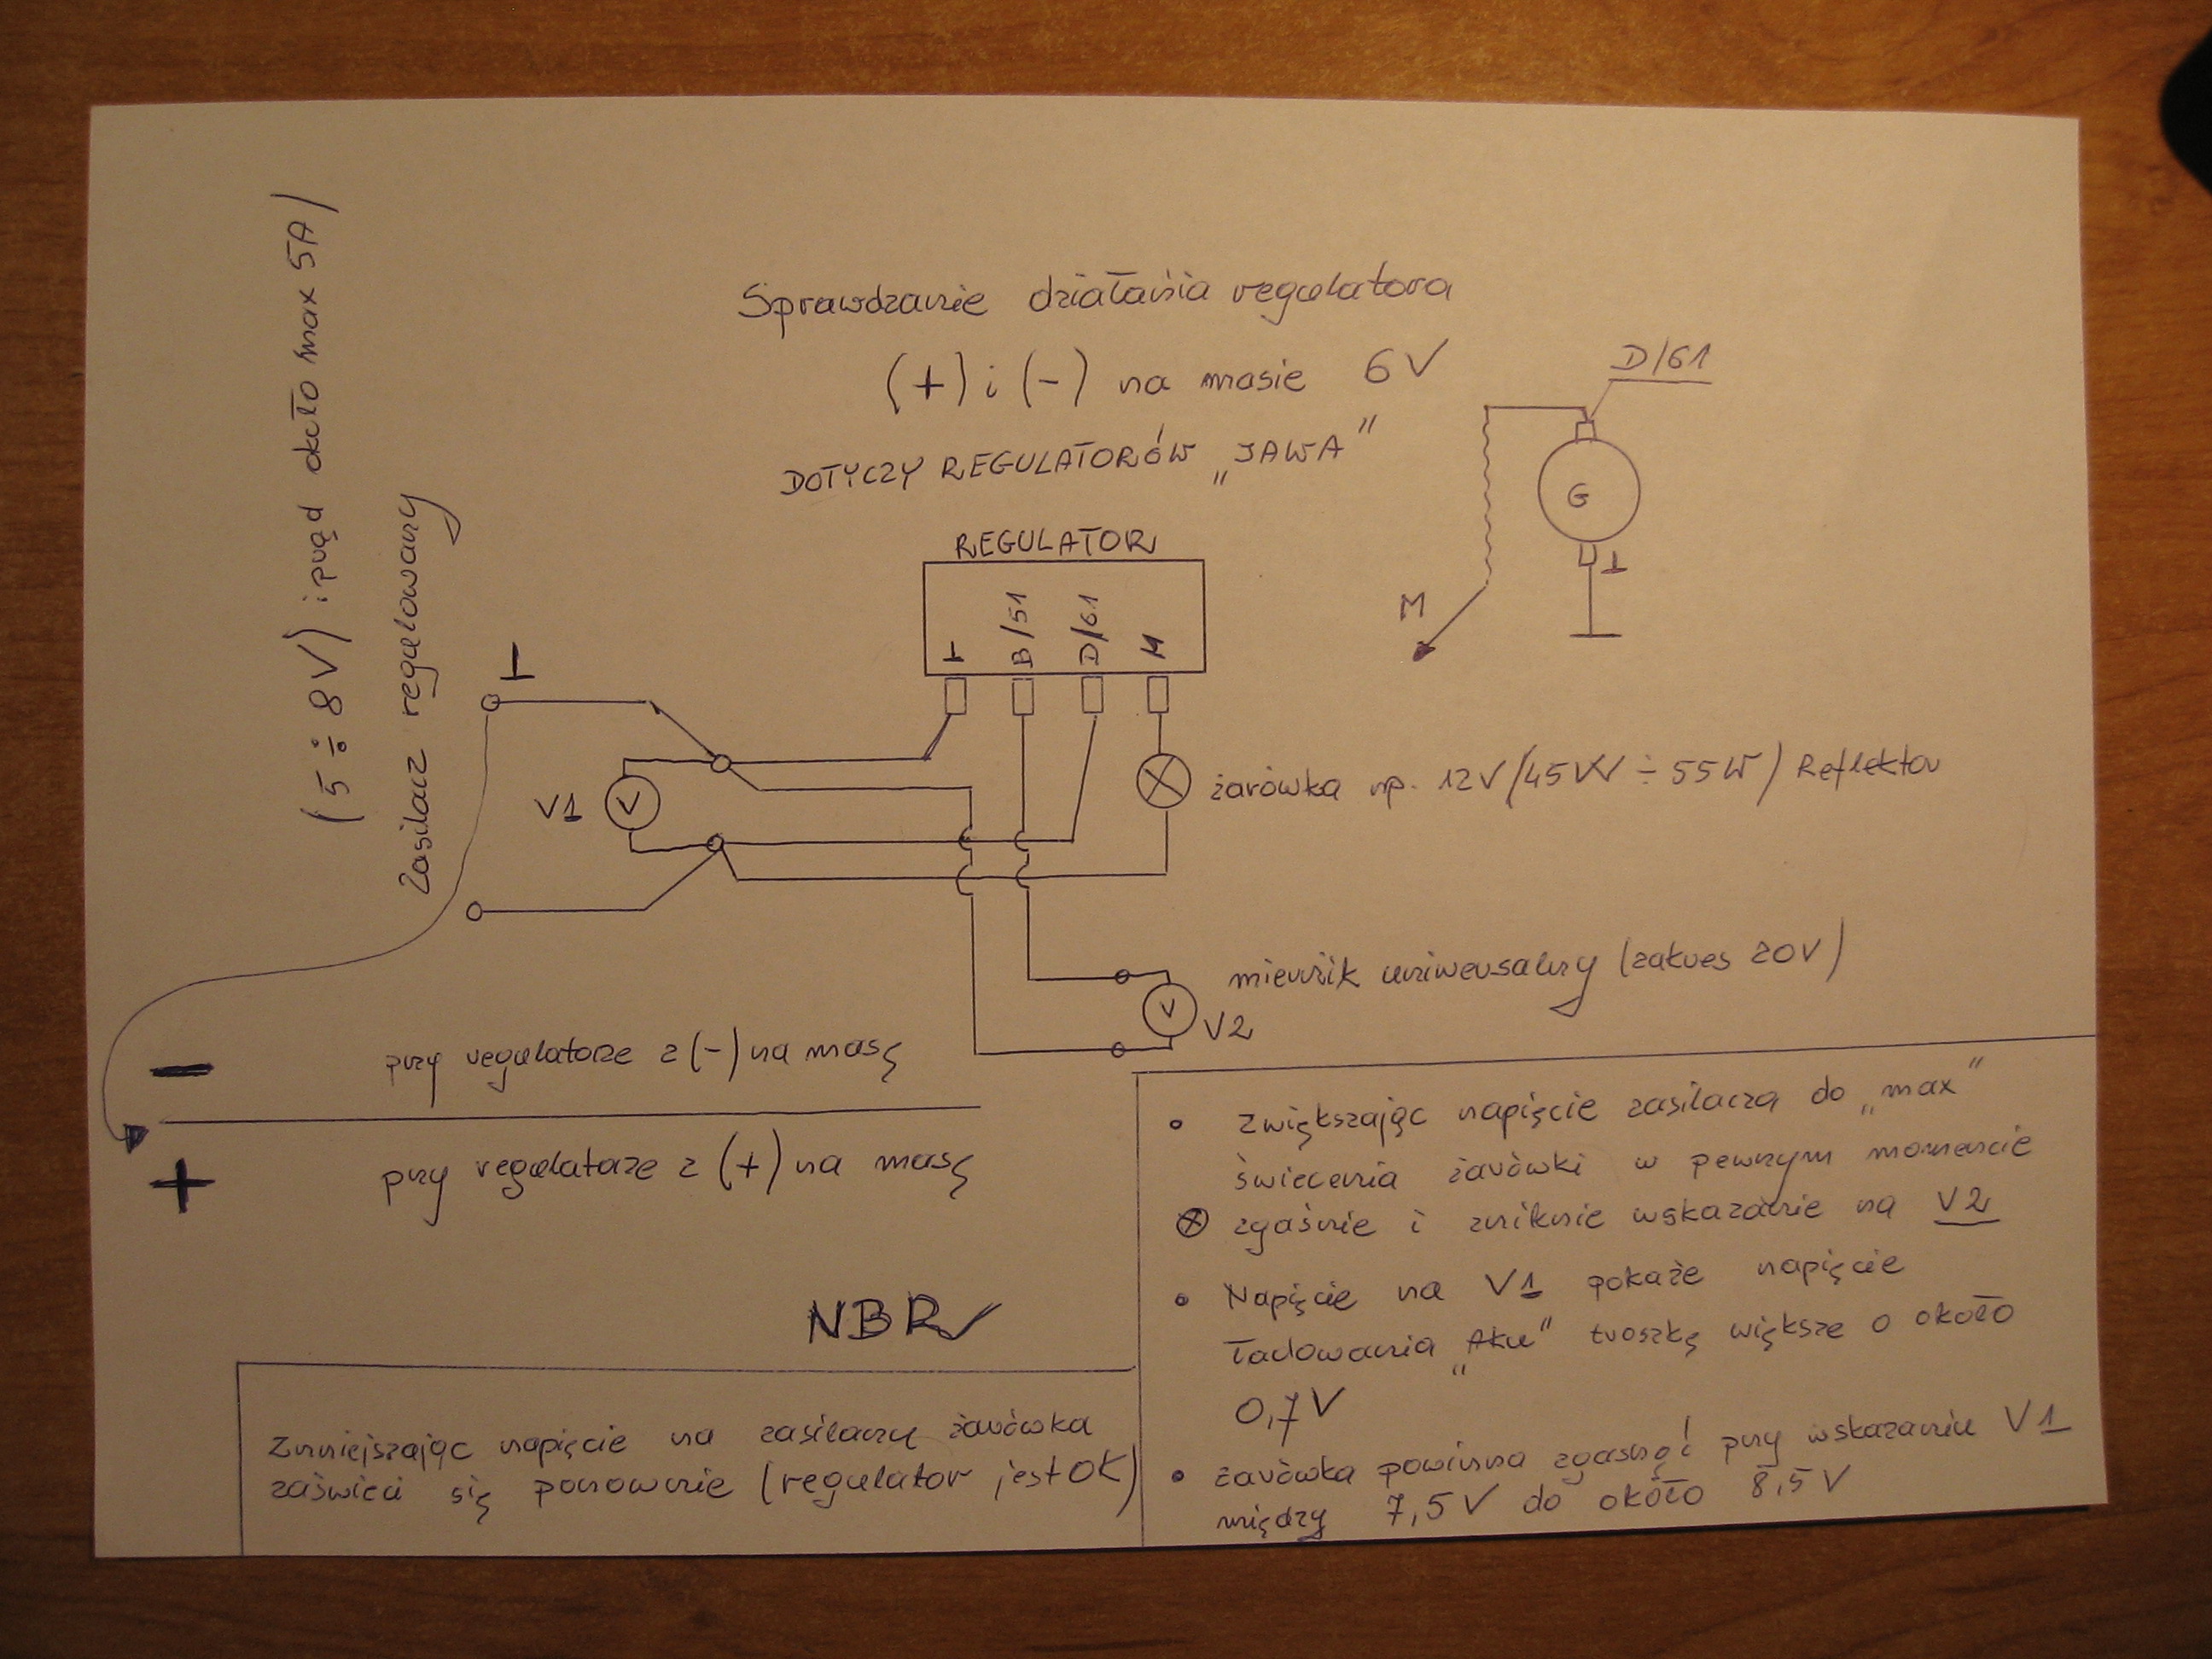 Sprawdzanie działania regulatora
(+) i (-) na masie 6V
DOTYCZY REGULATORÓW „JAWA"
(5÷8V) i prąd około max 5A)
Zasilacz regulowany
REGULATOR
⊥ B/51 D/61 M
D/61
G
⊥
M
⊥
V1
V
żarówka np. 12V/45W÷55W) Reflektor
miernik uniwersalny (zakres 20V)
V
V2
− przy regulatorze z (-) na masę
+ przy regulatorze z (+) na masę
NBR
Zmniejszając napięcie na zasilaczu żarówka
zaświeci się ponownie (regulator jest OK)
• Zwiększając napięcie zasilacza do „max"
świecenia żarówki w pewnym momencie
⊗ zgaśnie i zniknie wskazanie na V2
• Napięcie na V1 pokaże napięcie
ładowania „Aku" troszkę większe o około
0,7V
• żarówka powinna zgasnąć przy wskazaniu V1
między 7,5V do około 8,5V